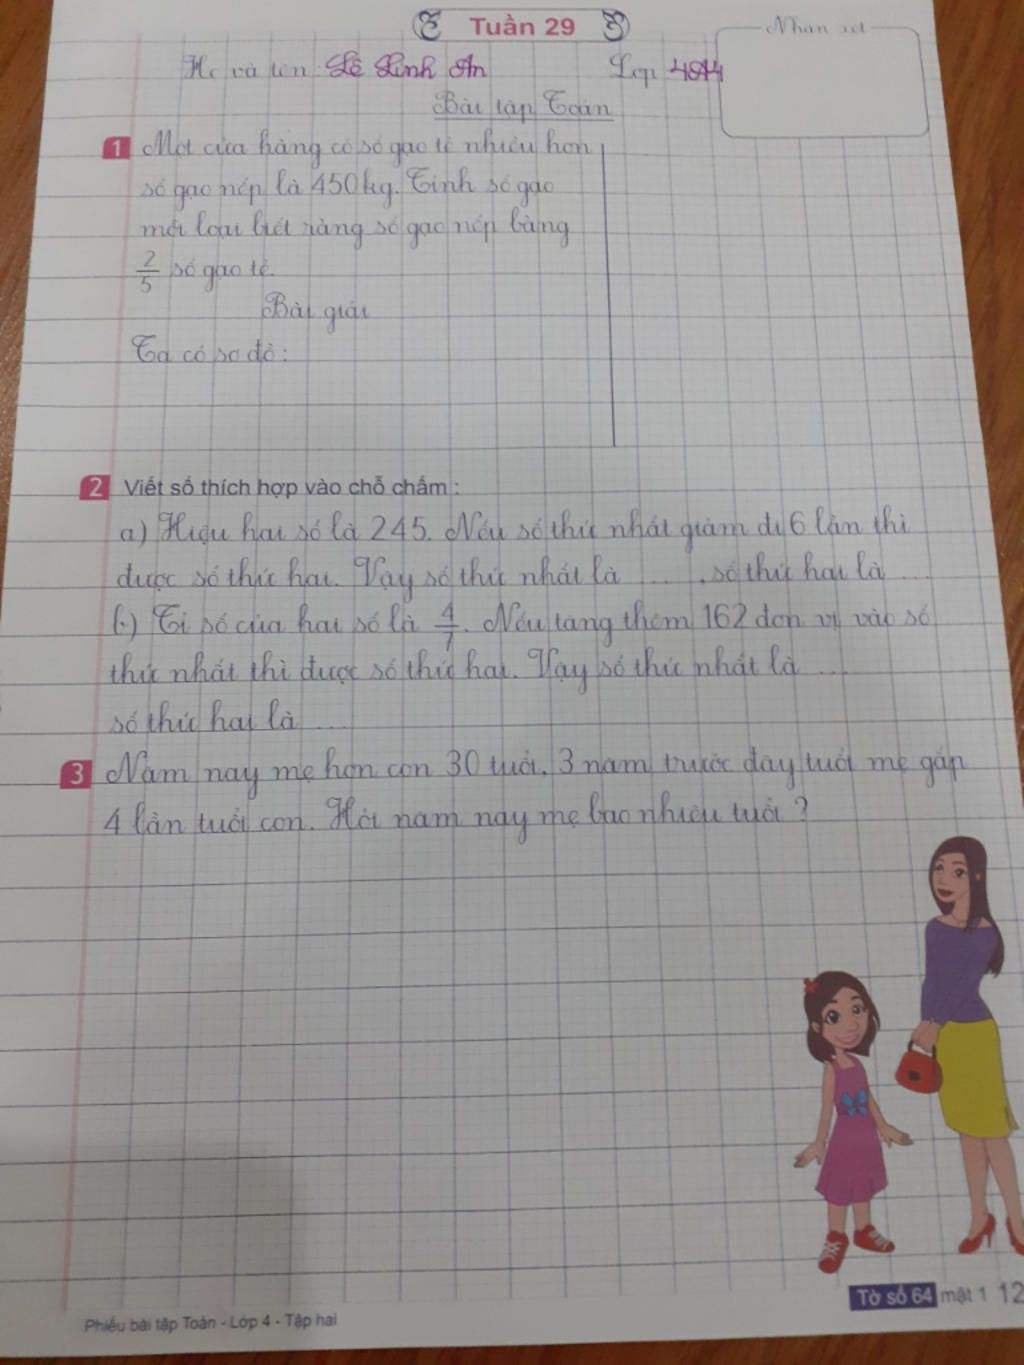 Tuần 29
Nhận xét
Họ và tên: Lê Linh An Lớp 4A14
Bài tập Toán
1 Một cửa hàng có số gạo tẻ nhiều hơn
số gạo nếp là 450kg. Tính số gạo
mỗi loại biết rằng số gạo nếp bằng
2/5 số gạo tẻ.
Bài giải
Ta có sơ đồ:
2 Viết số thích hợp vào chỗ chấm :
a) Hiệu hai số là 245. Nếu số thứ nhất giảm đi 6 lần thì
được số thứ hai. Vậy số thứ nhất là ...., số thứ hai là ...
b) Tỉ số của hai số là 4/7. Nếu tăng thêm 162 đơn vị vào số
thứ nhất thì được số thứ hai. Vậy số thứ nhất là ...
số thứ hai là ...
3 Năm nay mẹ hơn con 30 tuổi. 3 năm trước đây tuổi mẹ gấp
4 lần tuổi con. Hỏi năm nay mẹ bao nhiêu tuổi ?
Tờ số 64 mặt 1 12
Phiếu bài tập Toán - Lớp 4 - Tập hai